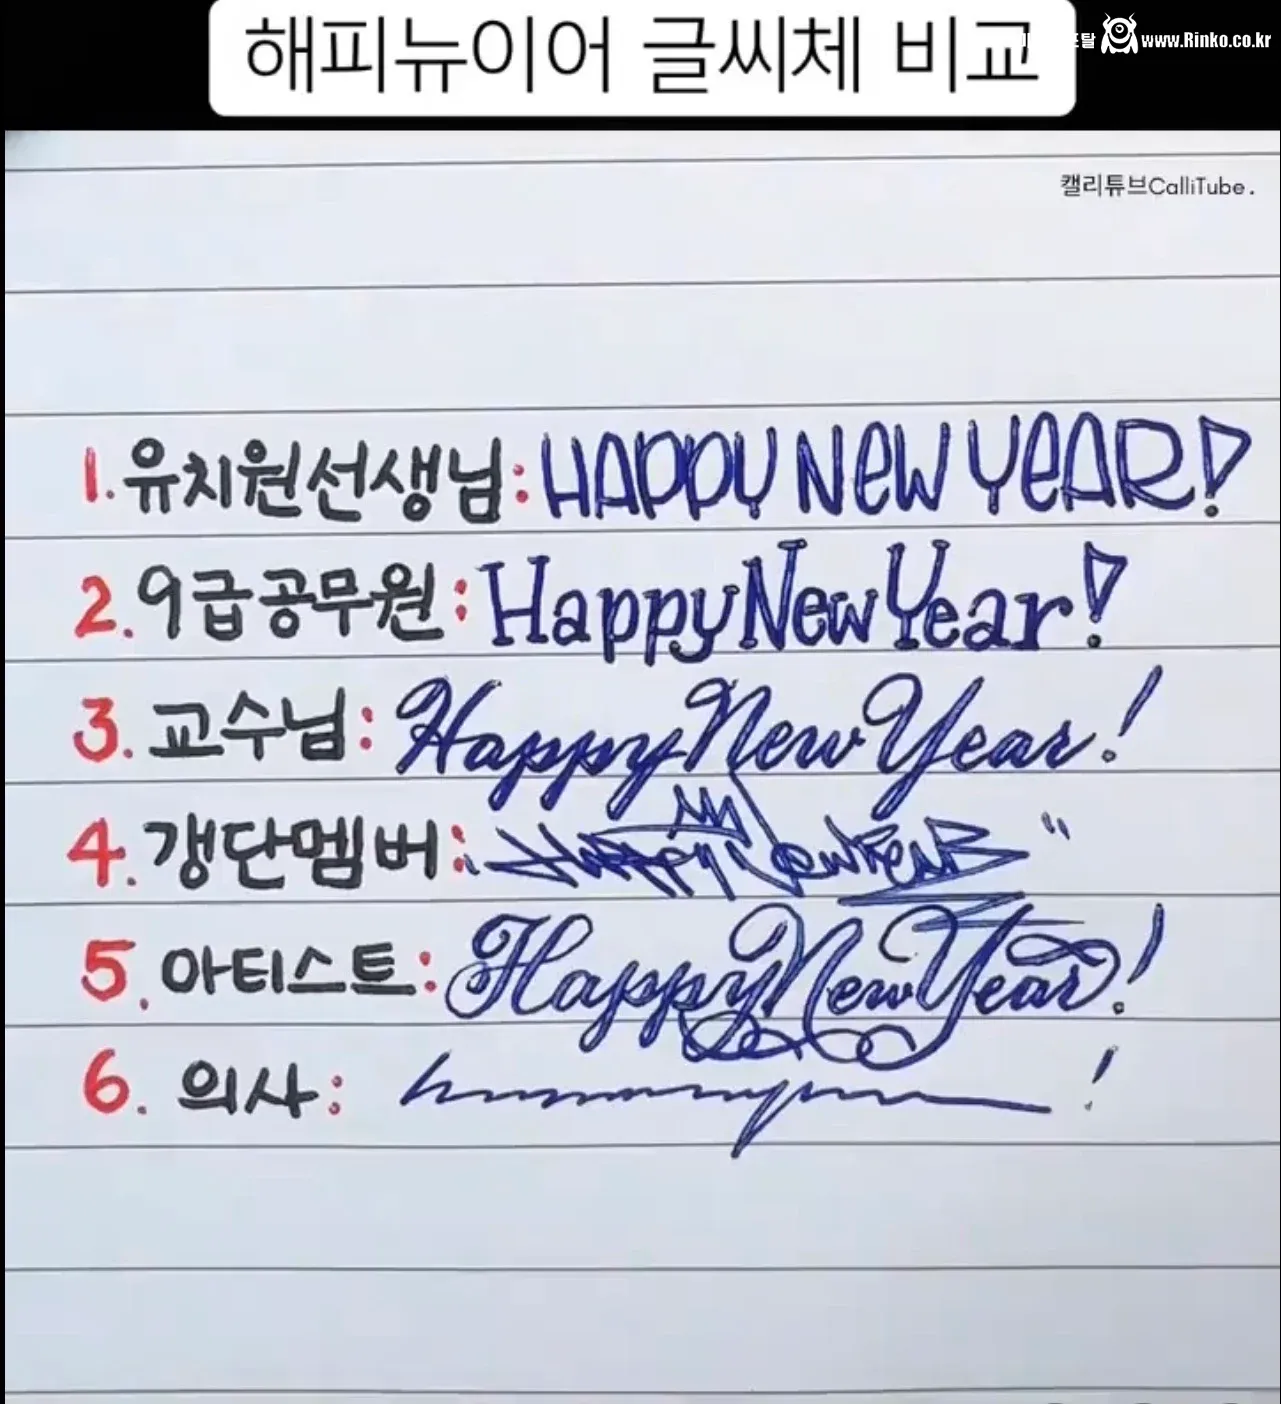 해피뉴이어 글씨체 비교
www.Rinko.co.kr
캘리튜브CalliTube.
1. 유치원선생님: HAPPY NeW YeAR!
2. 9급공무원: Happy New Year!
3. 교수님: Happy New Year!
4. 갱단멤버: "Happy New Year"
5. 아티스트: Happy New Year!
6. 의사: !